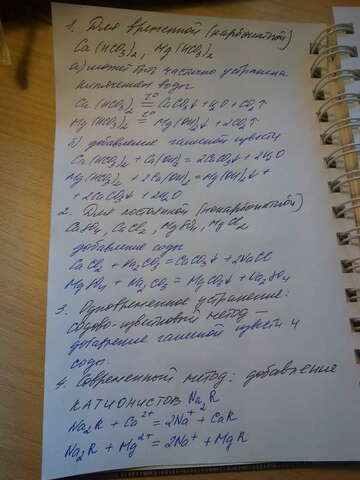 1. Для временной (карбонатной)
Ca(HCO₃)₂, Mg(HCO₃)₂
а) может быть частично устранена
кипячением воды
Ca(HCO₃)₂ =t°= CaCO₃↓ + H₂O + CO₂↑
Mg(HCO₃)₂ =t°= Mg(OH)₂↓ + 2CO₂↑
б) добавление гашеной извести
Ca(HCO₃)₂ + Ca(OH)₂ = 2CaCO₃↓ + 2H₂O
Mg(HCO₃)₂ + 2Ca(OH)₂ = Mg(OH)₂↓ +
+ 2CaCO₃↓ + 2H₂O
2. Для постоянной (некарбонатной)
CaSO₄, CaCl₂, MgSO₄, MgCl₂
добавление соды
CaCl₂ + Na₂CO₃ = CaCO₃↓ + 2NaCl
MgSO₄ + Na₂CO₃ = MgCO₃↓ + Na₂SO₄
3. Одновременное устранение:
содово-известковый метод —
добавление гашеной извести и
соды.
4. Современный метод: добавление
катионистов Na₂R
Na₂R + Ca²⁺ = 2Na⁺ + CaR
Na₂R + Mg²⁺ = 2Na⁺ + MgR